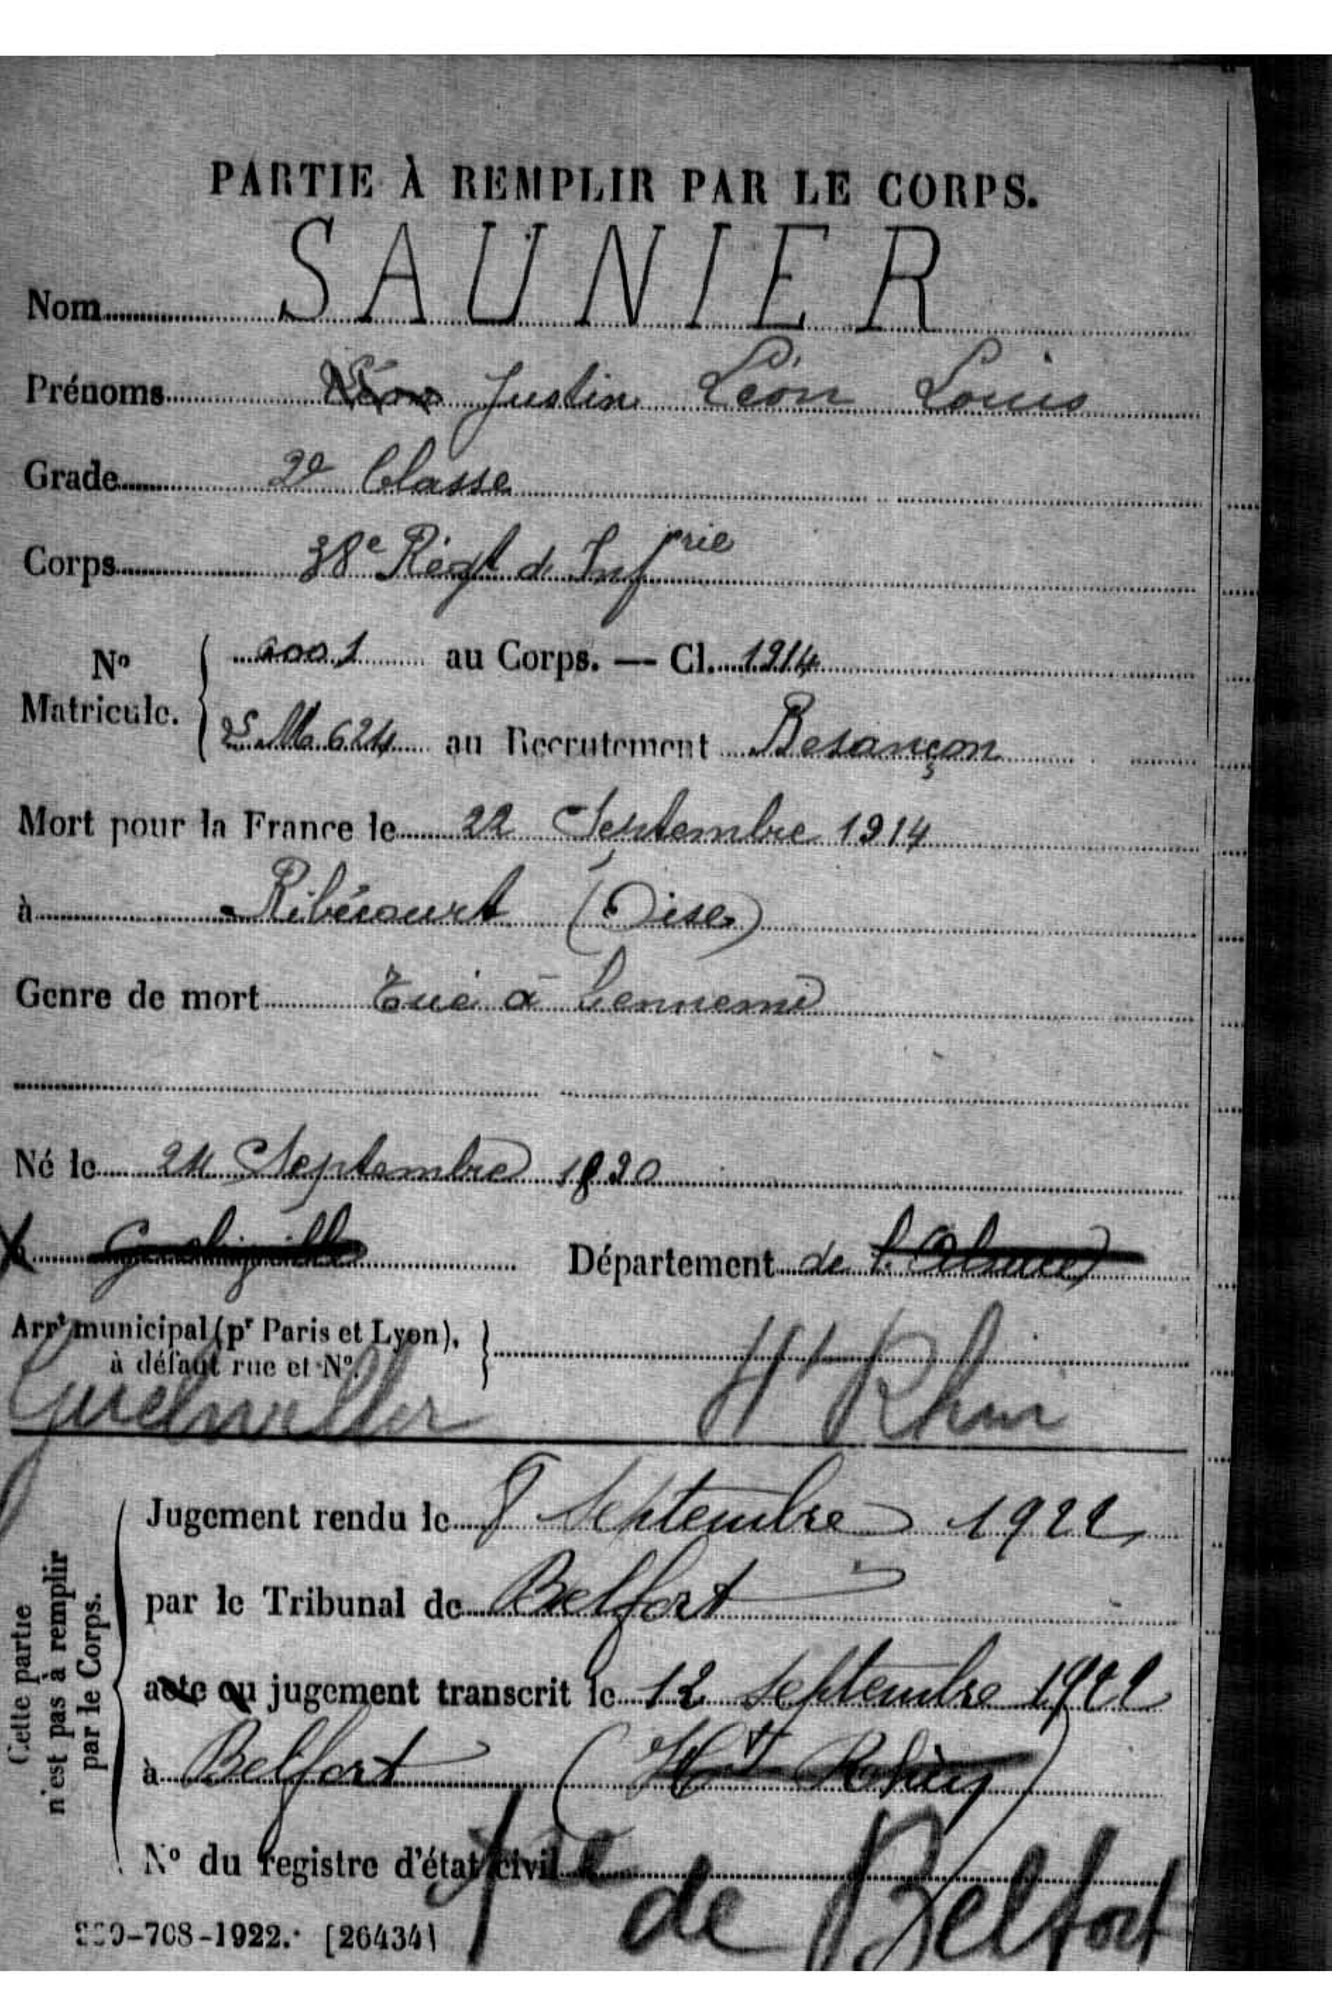 PARTIE À REMPLIR PAR LE CORPS.
Nom SAUNIER
Prénoms Justin Léon Louis
Grade 2e Classe
Corps 38e Régt d'Infrie
No Matricule. 6001 au Corps. — Cl. 1914
624 au Recrutement Besançon
Mort pour la France le 22 Septembre 1914
à Ribécourt (Oise)
Genre de mort Tué à l'ennemi
Né le Septembre
Département de l'Alsace
Arrt municipal (pr Paris et Lyon),
à défaut rue et No.
Ht Rhin
Cette partie
n'est pas à remplir
par le Corps.
Jugement rendu le 8 Septembre 1922
par le Tribunal de Belfort
acte ou jugement transcrit le 12 septembre 1922
à Belfort (Ht Rhin)
No du registre d'état civil
de Belfort
-708-1922. [26434]